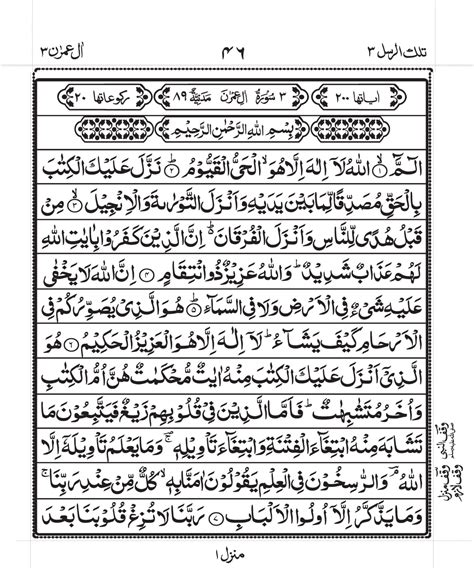 تلك الرسل ٣ ۴۶ اٰل عمرٰن ٣
اٰیاتها ٢٠٠ ٣ سُوْرَةُ اٰلِ عِمْرٰنَ مَدَنِيَّةٌ ٨٩ رکوعاتها ٢٠
بِسْمِ اللّٰهِ الرَّحْمٰنِ الرَّحِيْمِ
الٓمَّٓ ۙ﴿١﴾ اللّٰهُ لَاۤ اِلٰهَ اِلَّا هُوَ ۙ الْحَىُّ الْقَيُّوْمُ ؕ﴿٢﴾ نَزَّلَ عَلَيْكَ الْكِتٰبَ
بِالْحَقِّ مُصَدِّقًا لِّمَا بَيْنَ يَدَيْهِ وَاَنْزَلَ التَّوْرٰىةَ وَالْاِنْجِيْلَ ۙ﴿٣﴾ مِنْ
قَبْلُ هُدًى لِّلنَّاسِ وَاَنْزَلَ الْفُرْقَانَ ؕ اِنَّ الَّذِيْنَ كَفَرُوْا بِاٰيٰتِ اللّٰهِ
لَهُمْ عَذَابٌ شَدِيْدٌ ؕ وَاللّٰهُ عَزِيْزٌ ذُو انْتِقَامٍ ﴿٤﴾ اِنَّ اللّٰهَ لَا يَخْفٰى
عَلَيْهِ شَىْءٌ فِى الْاَرْضِ وَلَا فِى السَّمَآءِ ؕ﴿٥﴾ هُوَ الَّذِىْ يُصَوِّرُكُمْ فِى
الْاَرْحَامِ كَيْفَ يَشَآءُ ؕ لَاۤ اِلٰهَ اِلَّا هُوَ الْعَزِيْزُ الْحَكِيْمُ ﴿٦﴾ هُوَ
الَّذِىْۤ اَنْزَلَ عَلَيْكَ الْكِتٰبَ مِنْهُ اٰيٰتٌ مُّحْكَمٰتٌ هُنَّ اُمُّ الْكِتٰبِ
وَاُخَرُ مُتَشٰبِهٰتٌ ؕ فَاَمَّا الَّذِيْنَ فِىْ قُلُوْبِهِمْ زَيْغٌ فَيَتَّبِعُوْنَ مَا
تَشَابَهَ مِنْهُ ابْتِغَآءَ الْفِتْنَةِ وَابْتِغَآءَ تَاْوِيْلِهٖ ۚ وَمَا يَعْلَمُ تَاْوِيْلَهٗۤ اِلَّا
اللّٰهُ ۘ وَالرّٰسِخُوْنَ فِى الْعِلْمِ يَقُوْلُوْنَ اٰمَنَّا بِهٖ ۙ كُلٌّ مِّنْ عِنْدِ رَبِّنَا ۚ
وَمَا يَذَّكَّرُ اِلَّاۤ اُولُوا الْاَلْبَابِ ﴿٧﴾ رَبَّنَا لَا تُزِغْ قُلُوْبَنَا بَعْدَ
وقف النبی
وقف منزل
وقف لازم
منزل ١